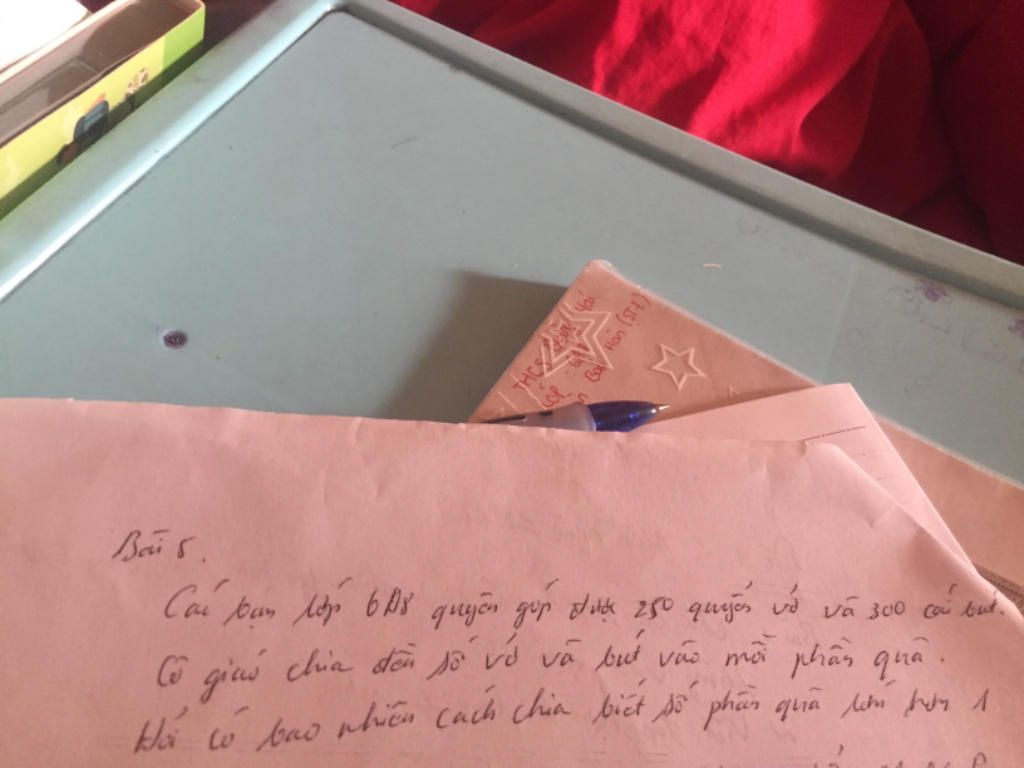 THCS
Lớp
Bài 5.
Các bạn lớp 6A8 quyên góp được 250 quyển vở và 300 cái bút.
Cô giáo chia đều số vở và bút vào mỗi phần quà.
Hỏi có bao nhiêu cách chia biết số phần quà lớn hơn 1